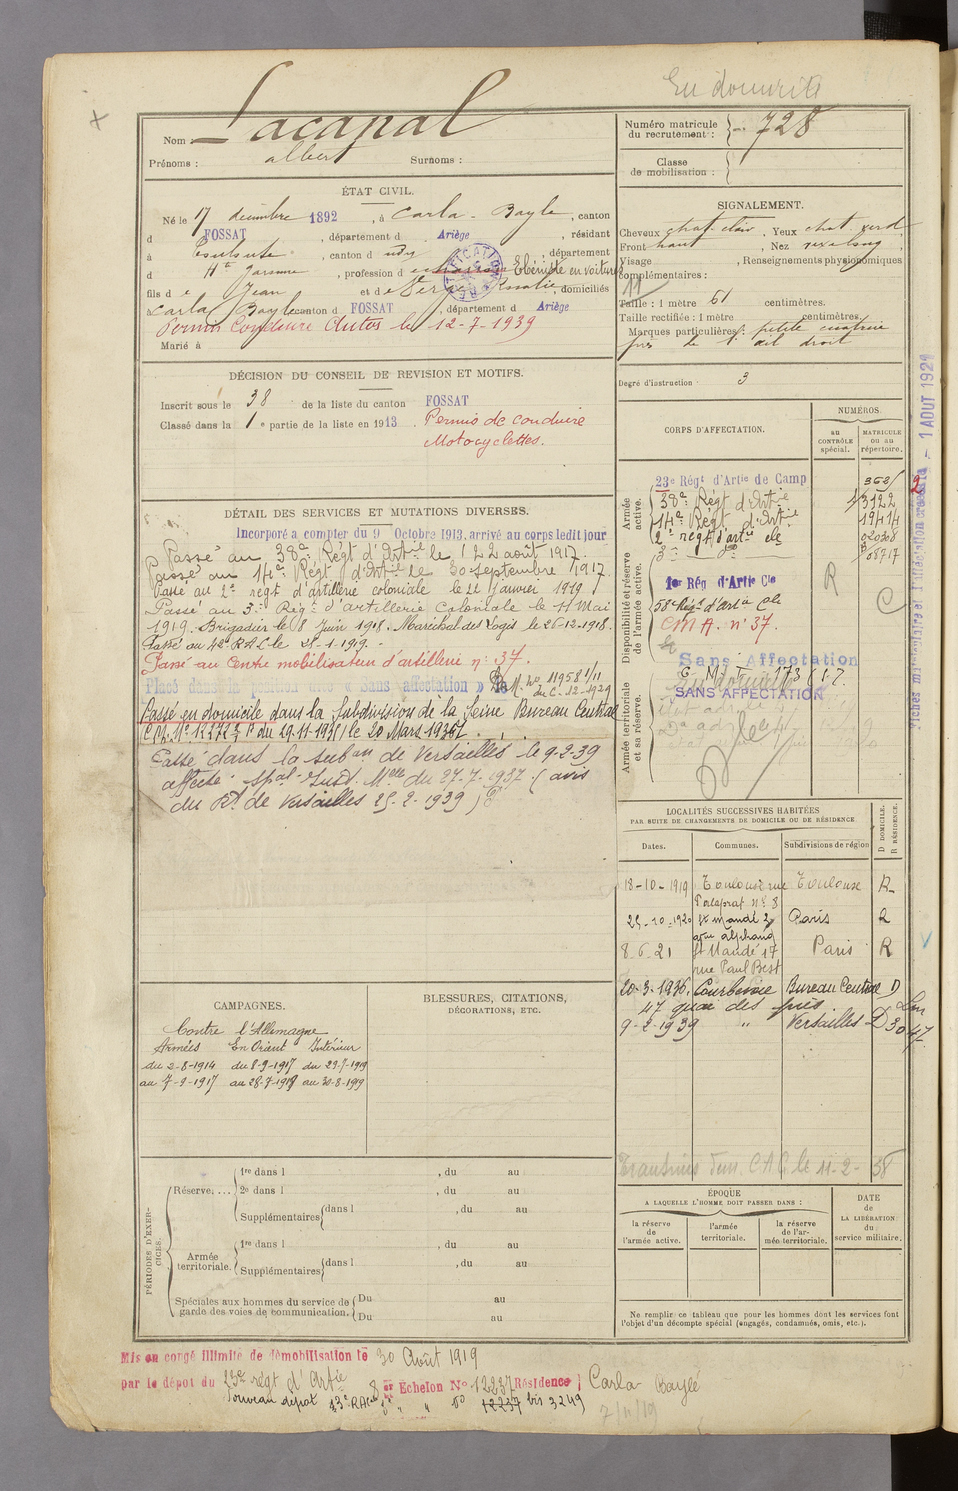 En domicile
Nom : Lacanal
Prénoms : albert Surnoms :
Numéro matricule du recrutement : 728
Classe de mobilisation :
ÉTAT CIVIL.
Né le 17 décembre 1892, à Carla-Bayle, canton
d FOSSAT, département d Ariège, résidant
à Toulouse, canton d udy, département
d Hte Garonne, profession d Ebéniste en voitures
fils d e Jean et d e Rosalie, domiciliés
Carla Bayle canton d FOSSAT, département d Ariège
Permis Conduire Autos le 12-7-1939
Marié à
RECTIFICATION
SIGNALEMENT.
Cheveux chat-clair, Yeux chat. verd
Front haut, Nez
Visage , Renseignements physionomiques
complémentaires :
Taille : 1 mètre 61 centimètres.
Taille rectifiée : 1 mètre centimètres.
Marques particulières : petite cicatrice
près de l'œil droit
Degré d'instruction 3
DÉCISION DU CONSEIL DE REVISION ET MOTIFS.
Inscrit sous le 38 de la liste du canton FOSSAT
Classé dans la 1e partie de la liste en 1913
Permis de conduire
Motocyclettes.
DÉTAIL DES SERVICES ET MUTATIONS DIVERSES.
Incorporé à compter du 9 Octobre 1913, arrivé au corps ledit jour
Passé au 38e Régt d'Artie le 22 août 1917.
Passé au 14e Régt d'Artie le 30 septembre 1917.
Passé au 2e régt d'artillerie coloniale le 21 janvier 1919
Passé au 3e Régt d'artillerie Coloniale le 11 Mai
1919. Brigadier le 8 Juin 1918. Maréchal des Logis le 26-12-1918.
Passé au 42e RAC le 21-1-1919.
Passé au Centre mobilisateur d'artillerie n° 37.
Placé dans la position dite « Sans affectation » No 11958 1/11
du C. 12-1929
Passé en domicile dans la Subdivision de la Seine Bureau Central
du 29.11.1935) le 20 Mars 1936
Passé dans la subon de Versailles, le 9-2-39
affecté Spal Inst. Melle du 27.7.1937 (avis
du Rt de Versailles 25-2-1939)
CORPS D'AFFECTATION.
NUMÉROS.
au CONTRÔLE spécial.
MATRICULE ou au répertoire.
Armée active.
23e Régt d'Artie de Camp
38e Régt d'Artie 3122
14e Régt d'Artie 19414
2e regt d'artie cle 020308
3e 08717
Disponibilité et réserve de l'armée active.
1er Rég d'Artie Cle
58 Régt d'art cle
C.M.A. n° 37.
Sans Affectation
SANS AFFECTATION
Armée territoriale et sa réserve.
R
C
Fiches matriculaire et d'affectation créées le - 1 AOUT 1921
LOCALITÉS SUCCESSIVES HABITÉES
PAR SUITE DE CHANGEMENTS DE DOMICILE OU DE RÉSIDENCE
Dates. Communes. Subdivisions de région D DOMICILE. R RÉSIDENCE.
18-10-1919 Toulouse rue Toulouse R
n° 8
25-10-1920 St Mandé 2 Paris R
8-6-21 St Mandé 17 Paris R
rue Paul Bert
20-3-1936. Courbevoie Bureau Central D
47 quai des
9-2-1939 " Versailles D
CAMPAGNES.
Contre l'Allemagne
Armées En Orient Intérieur
du 2-8-1914 du 8-9-1917 du 29-7-1919
au 7-9-1917 au 28-7-1919 au 30-8-1919
BLESSURES, CITATIONS,
DÉCORATIONS, ETC.
PÉRIODES D'EXERCICES.
Réserve. ...
1re dans l , du au
2e dans l , du au
Supplémentaires dans l , du au
Armée territoriale.
1re dans l , du au
Supplémentaires dans l , du au
Spéciales aux hommes du service de garde des voies de communication.
Du au
Du au
C A C. le 11-2-38
ÉPOQUE
A LAQUELLE L'HOMME DOIT PASSER DANS :
la réserve de l'armée active.
l'armée territoriale.
la réserve de l'armée territoriale.
DATE de LA LIBÉRATION du service militaire.
Ne remplir ce tableau que pour les hommes dont les services font
l'objet d'un décompte spécial (engagés, condamnés, omis, etc.).
Mis en congé illimité de démobilisation le 30 Août 1919
par le dépôt du 23e régt d'Artie 8er Echelon No 12237 Résidence Carla Bayle
Nouveau dépôt 23e RAC " " no 12237 bis 3249
7/11/19